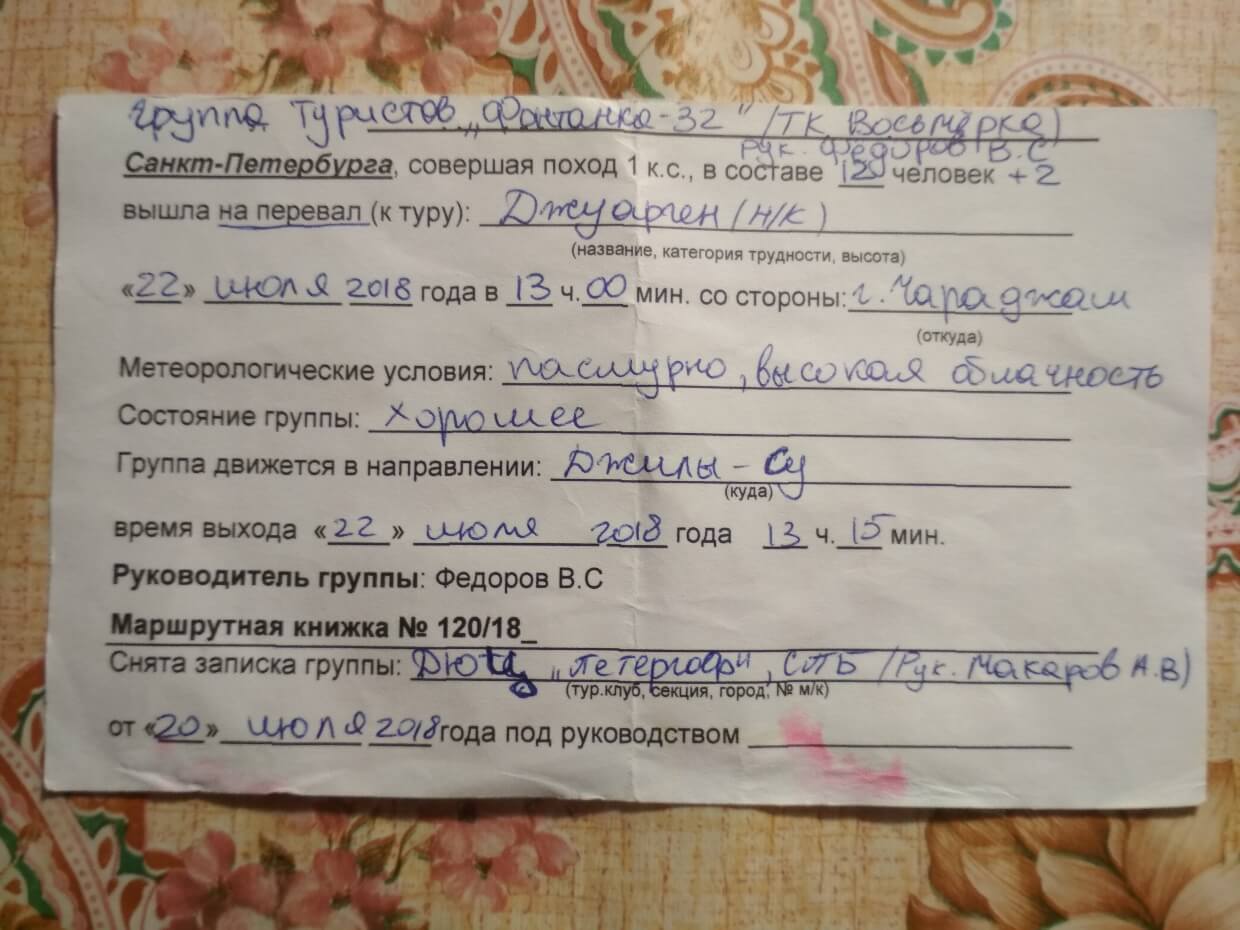 Группа туристов „Фонтанка-32" /ТК Восьмёрка)
рук. Федоров В.С
Санкт-Петербурга, совершая поход 1 к.с., в составе 12 человек +2
вышла на перевал (к туру): Джуарген (н/к)
(название, категория трудности, высота)
«22» июля 2018 года в 13 ч. 00 мин. со стороны: г. Чараджам
(откуда)
Метеорологические условия: пасмурно, высокая облачность
Состояние группы: хорошее
Группа движется в направлении: Джилы-Су
(куда)
время выхода «22» июля 2018 года 13 ч. 15 мин.
Руководитель группы: Федоров В.С
Маршрутная книжка № 120/18_
Снята записка группы: ДЮЦ „Петергоф", СПБ (Рук. Макаров А.В)
(тур.клуб, секция, город, № м/к)
от «20» июля 2018 года под руководством